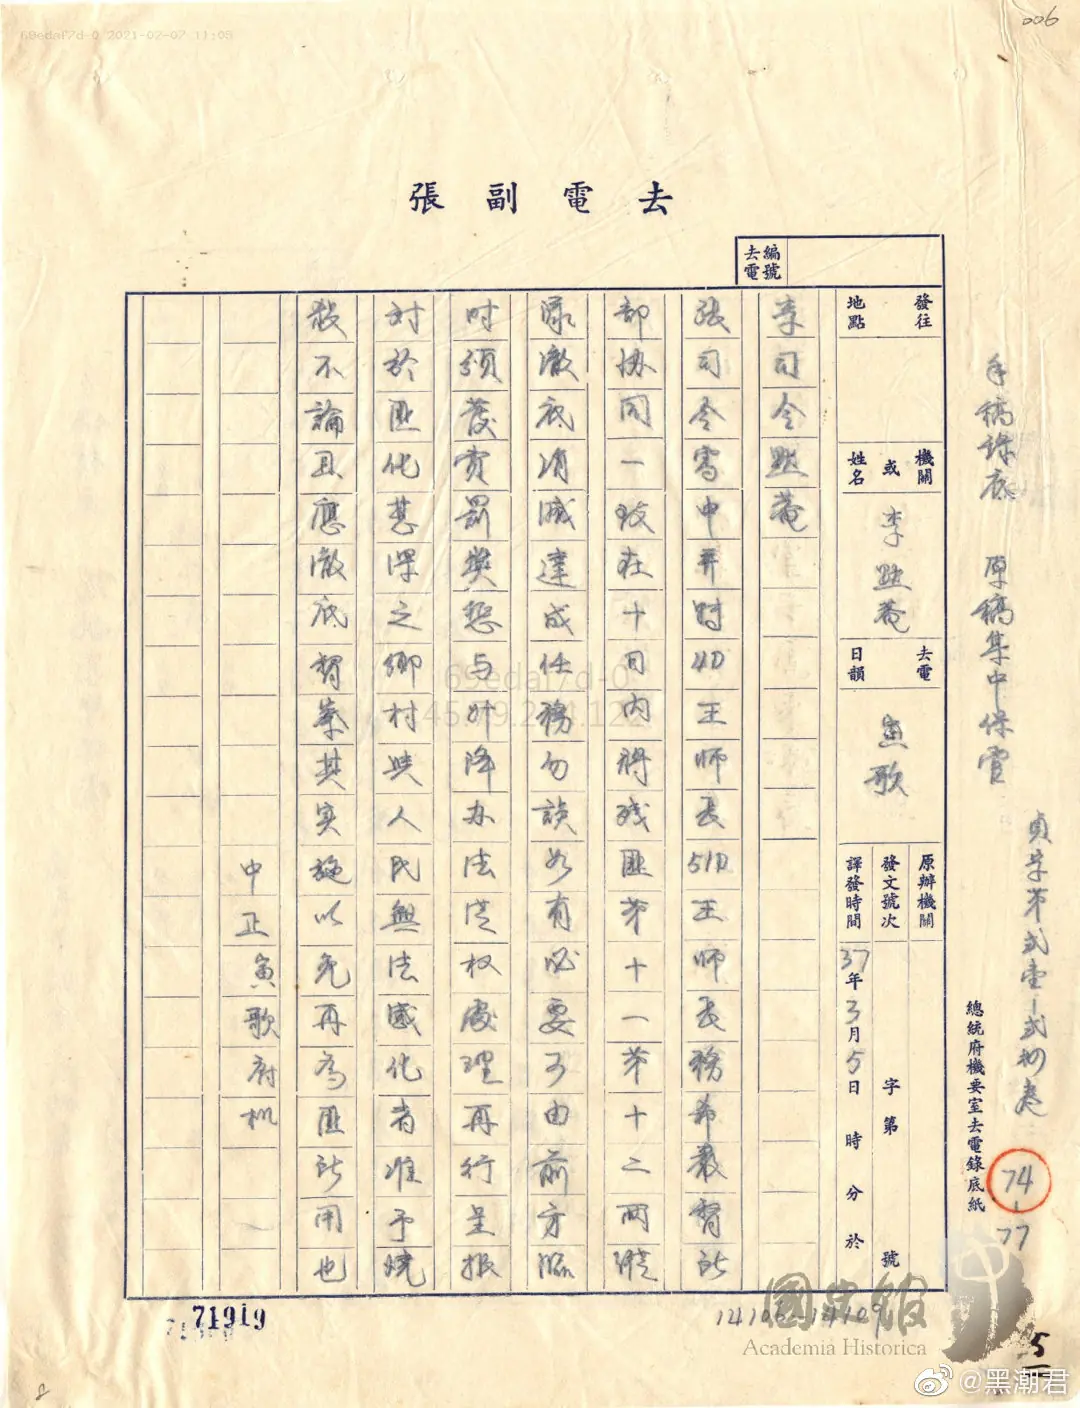 006
69edaf7d-0 2021-02-07 11:05
去電副張
去電編號
發往地點
機關或姓名 李默菴
去電日韻 寅歌
原辦機關
發文號次 字第 號
譯發時間 37年3月5日 時 分於
手稿錄底 原稿集中保管
貞字第貳壹-貳捌卷
總統府機要室去電錄底紙
74-77
李司令默菴
張司令雪中并轉4D王師長51D王師長務希嚴督所
部協同一致在十日內將殘匪第十一第十二兩縱
隊澈底消滅達成任務勿誤如有必要可由前方臨
時頒發賞罰獎懲与升降办法從权處理再行呈报
对於匪化甚深之鄉村与人民無法感化者准予燒
殺不論且應澈底督察其实施以免再为匪所用也
中正寅歌府机
69edaf7d-0
71919
14106-14109
國史館
Academia Historica
5
@黑潮君